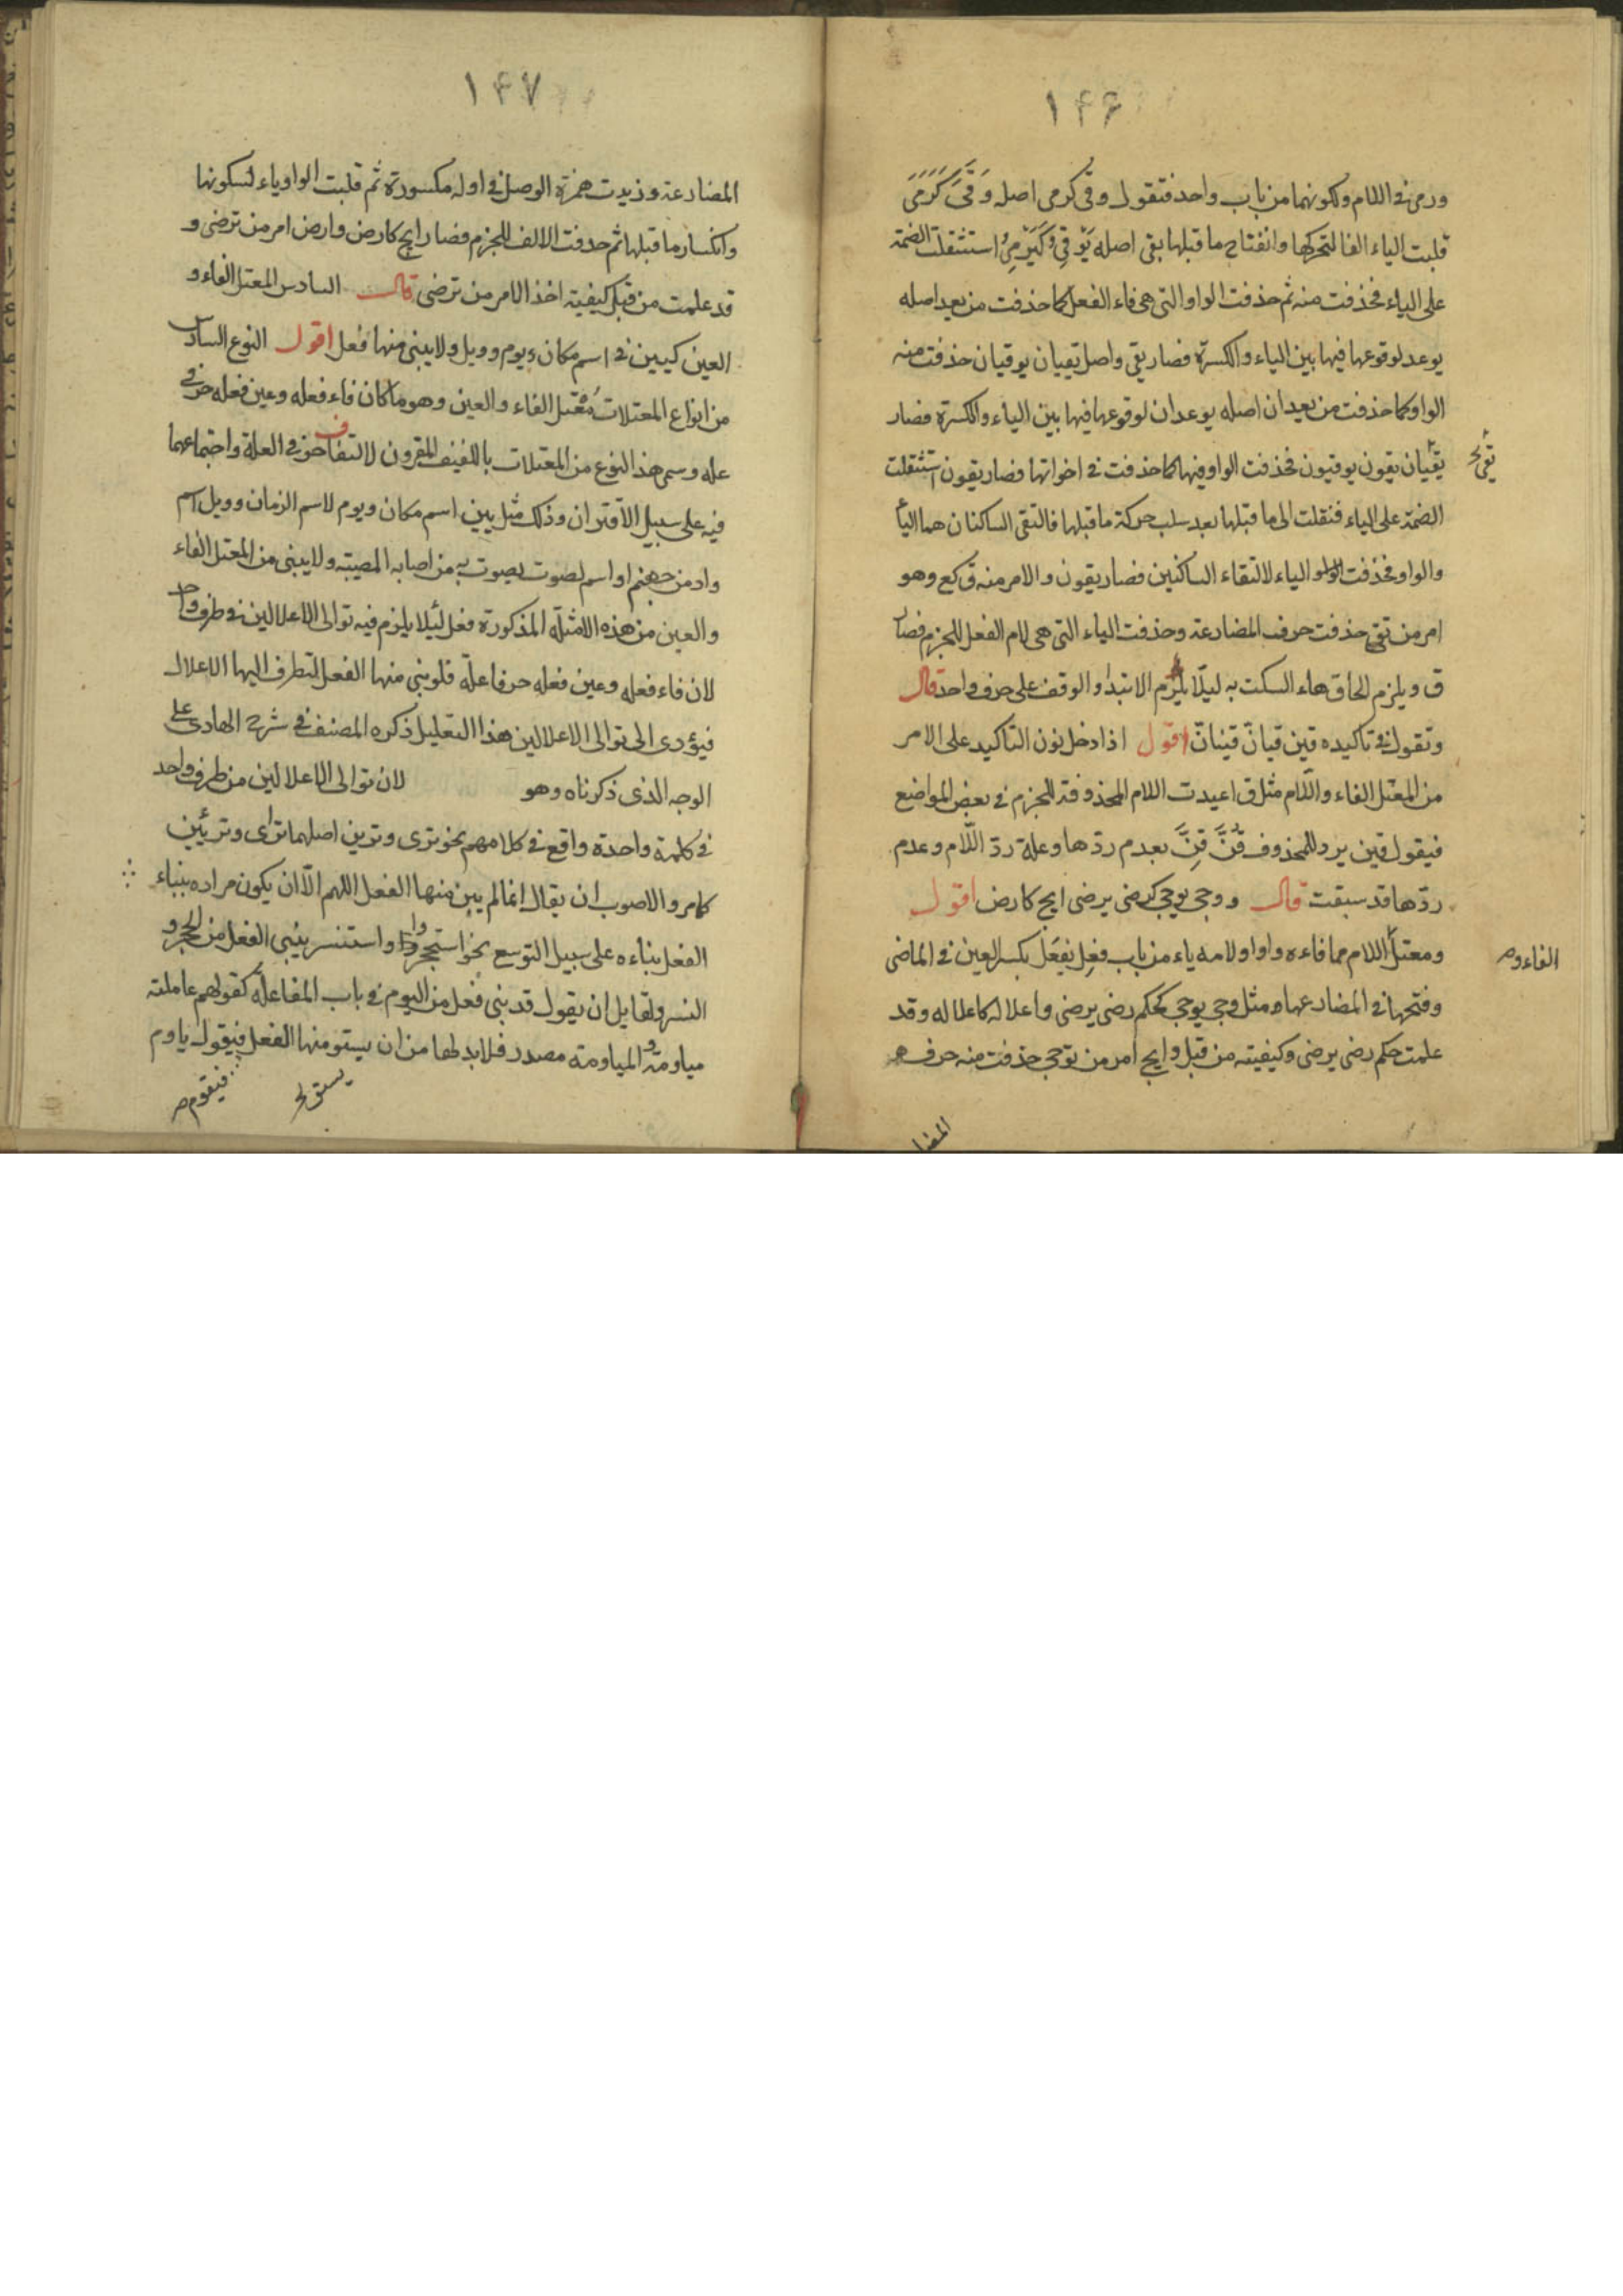 ١٤٦
ورمى في اللام ولكونهما من باب واحد فتقول وقى كرمى اصله وَقَىَ كَرَمَىَ
قلبت الياء الفا لتحركها وانفتاح ما قبلها يقى اصله يَوْقِىُ كَيَرْمِىُ استثقلت الضمة
على الياء فحذفت منه ثم حذفت الواو التى هى فاء الفعل كما حذفت من يعد اصله
يوعد لوقوعها فيها بين الياء والكسرة فصار يقى واصل يقيان يوقيان حذفت منه
الواو كما حذفت من يعدان اصله يوعدان لوقوعها فيها بين الياء والكسرة فصار
يقيان يقون يوقيون فحذفت الواو فيها كما حذفت في اخواتها فصار يقون استثقلت
الضمة على الياء فنقلت الى ما قبلها بعد سلب حركة ما قبلها فالتقى الساكنان هما الياء
والواو فحذفت الياء لالتقاء الساكنين فصار يقون والامر منه ق كع وهو
امر من تقى حذفت حرف المضارعة وحذفت الياء التى هى لام الفعل للجزم فصار
ق ويلزم الحاق هاء السكت به ليلّا يلزم الابتداء والوقف على حرف واحد قال
وتقول في تاكيده قين قيانّ قينانّ اقول اذا دخل نون التاكيد على الامر
من المعتل الفاء واللّام مثل ق اعيدت اللام المحذوفة للجزم في بعض المواضع
فيقول قين برد المحذوف قُنَّ قِنَّ بعدم ردّها وعلة ردّ اللّام وعدم
ردّها قد سبقت قال ووجى يوجى كرضى يرضى ايج كارض اقول
ومعتل اللام مما فاءه واوا ولامه ياء من باب فعِل يفعَل بكسر العين في الماضى
الفاء و صح
وفتحها في المضارعها ومثل وجى يوجى كحكم رضى يرضى واعلاله كاعلاله وقد
علمت حكم رضى يرضى وكيفيته من قبل وايج امر من توجى حذفت منه حرف
المضا
١٤٧
المضارعة وزيدت همزة الوصل في اوله مكسورة ثم قلبت الواو ياء لسكونها
وانكسار ما قبلها ثم حذفت الالف للجزم فصار ايج كارض وارض امر من ترضى و
قد علمت من قبل كيفية اخذ الامر من ترضى قال السادس المعتل الفاء و
العين كيين في اسم مكان ويوم وويل ولا يبنى منها فعل اقول النوع السادس
من انواع المعتلات معتل الفاء والعين وهو ما كان فاء فعله وعين فعله حرفى
عله وسمى هذ النوع من المعتلات باللفيف المقرون لالتفاف حرفى العلة واجتماعهما
فيه على سبيل الاقتران وذلك مثل يين اسم مكان ويوم لاسم الزمان وويل اسم
واد من جهنم او اسم لصوت يصوت به من اصابه المصيبة ولا يبنى من المعتل الفاء
والعين من هذه الامثلة المذكورة فعل لئلا يلزم فيه توالى الاعلالين في طرف واحد
لان فاء فعله وعين فعله حرفا علّة فلو بنى منها الفعل لتطرف اليها الاعلال
فيؤدى الى توالى الاعلالين هذا التعليل ذكره المصنف في شرح الهادى على
الوجه الذى ذكرناه وهو لان توالى الاعلالين من طرف واحد
في كلمة واحدة واقع في كلامهم نحو ترى وترين اصلهما ترأى وترئين
كامر والاصوب ان يقال انما لم يبن منها الفعل اللهم الّا ان يكون مراده ببناء
الفعل بناءه على سبيل التوسع نحو استحجر واستنسر يبنى الفعل من الحجر و
النسر ولقايل ان يقول قد بنى فعل من اليوم في باب المفاعلة كقولهم عاملته
مياومة والمياومة مصدر فلابد لها من ان يستو منها الفعل فيقول ياوم